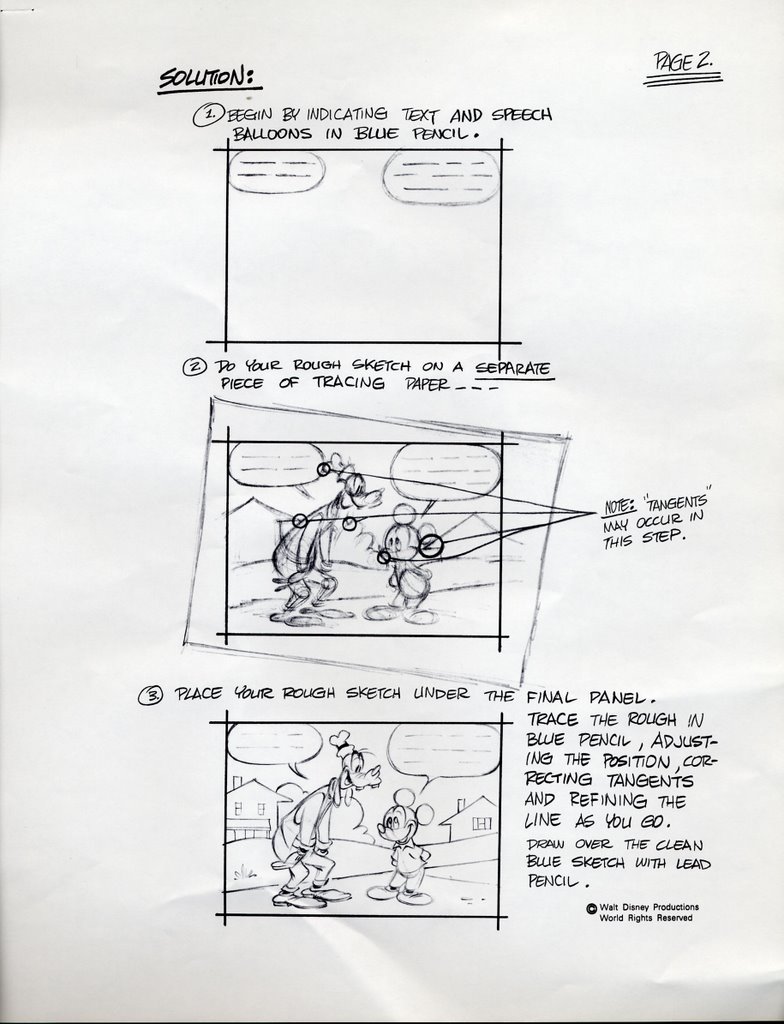 PAGE 2.
SOLUTION:
1. BEGIN BY INDICATING TEXT AND SPEECH
BALLOONS IN BLUE PENCIL.
2 DO YOUR ROUGH SKETCH ON A SEPARATE
PIECE OF TRACING PAPER ---
NOTE: "TANGENTS"
MAY OCCUR IN
THIS STEP.
3. PLACE YOUR ROUGH SKETCH UNDER THE FINAL PANEL.
TRACE THE ROUGH IN
BLUE PENCIL, ADJUST-
ING THE POSITION, COR-
RECTING TANGENTS
AND REFINING THE
LINE AS YOU GO.
DRAW OVER THE CLEAN
BLUE SKETCH WITH LEAD
PENCIL.
© Walt Disney Productions
World Rights Reserved